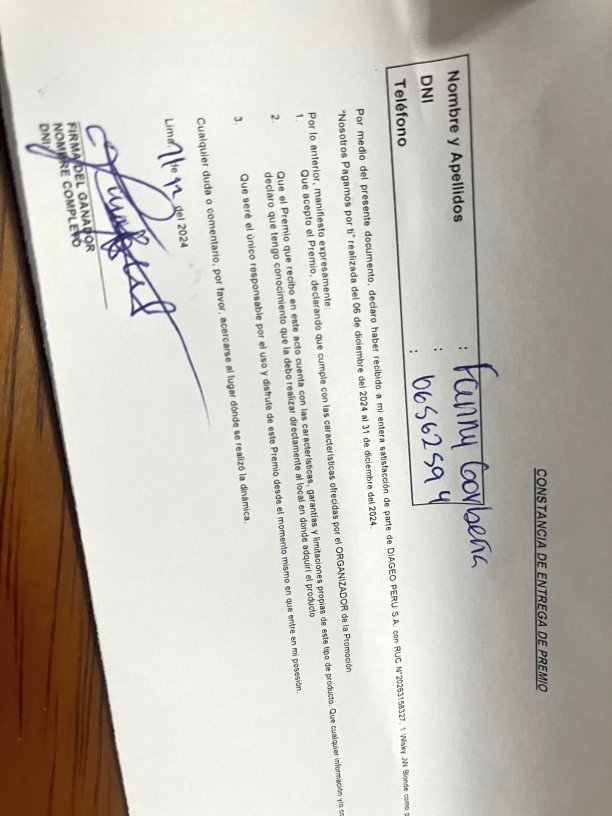 CONSTANCIA DE ENTREGA DE PREMIO
Nombre y Apellidos : Fanny
DNI :
Teléfono :
Por medio del presente documento, declaro haber recibido a mi entera satisfacción de parte de DIAGEO PERU S.A. con RUC N°20263158327, 1 Wisky JW Blonde como
"Nosotros Pagamos por ti" realizada del 06 de diciembre del 2024 al 31 de diciembre del 2024.
Por lo anterior, manifiesto expresamente:
1. Que acepto el Premio, declarando que cumple con las características ofrecidas por el ORGANIZADOR de la Promoción
2. Que el Premio que recibo en este acto cuenta con las características, garantías y limitaciones propias de este tipo de producto. Que cualquier información y/o
declaro que tengo conocimiento que la debo realizar directamente al local en donde adquirí el producto
3. Que seré el único responsable por el uso y disfrute de este Premio desde el momento mismo en que entre en mi posesión.
Cualquier duda o comentario, por favor, acercarse al lugar dónde se realizó la dinámica.
Lima, de 12 del 2024
FIRMA DEL GANADOR
NOMBRE COMPLETO
DNI